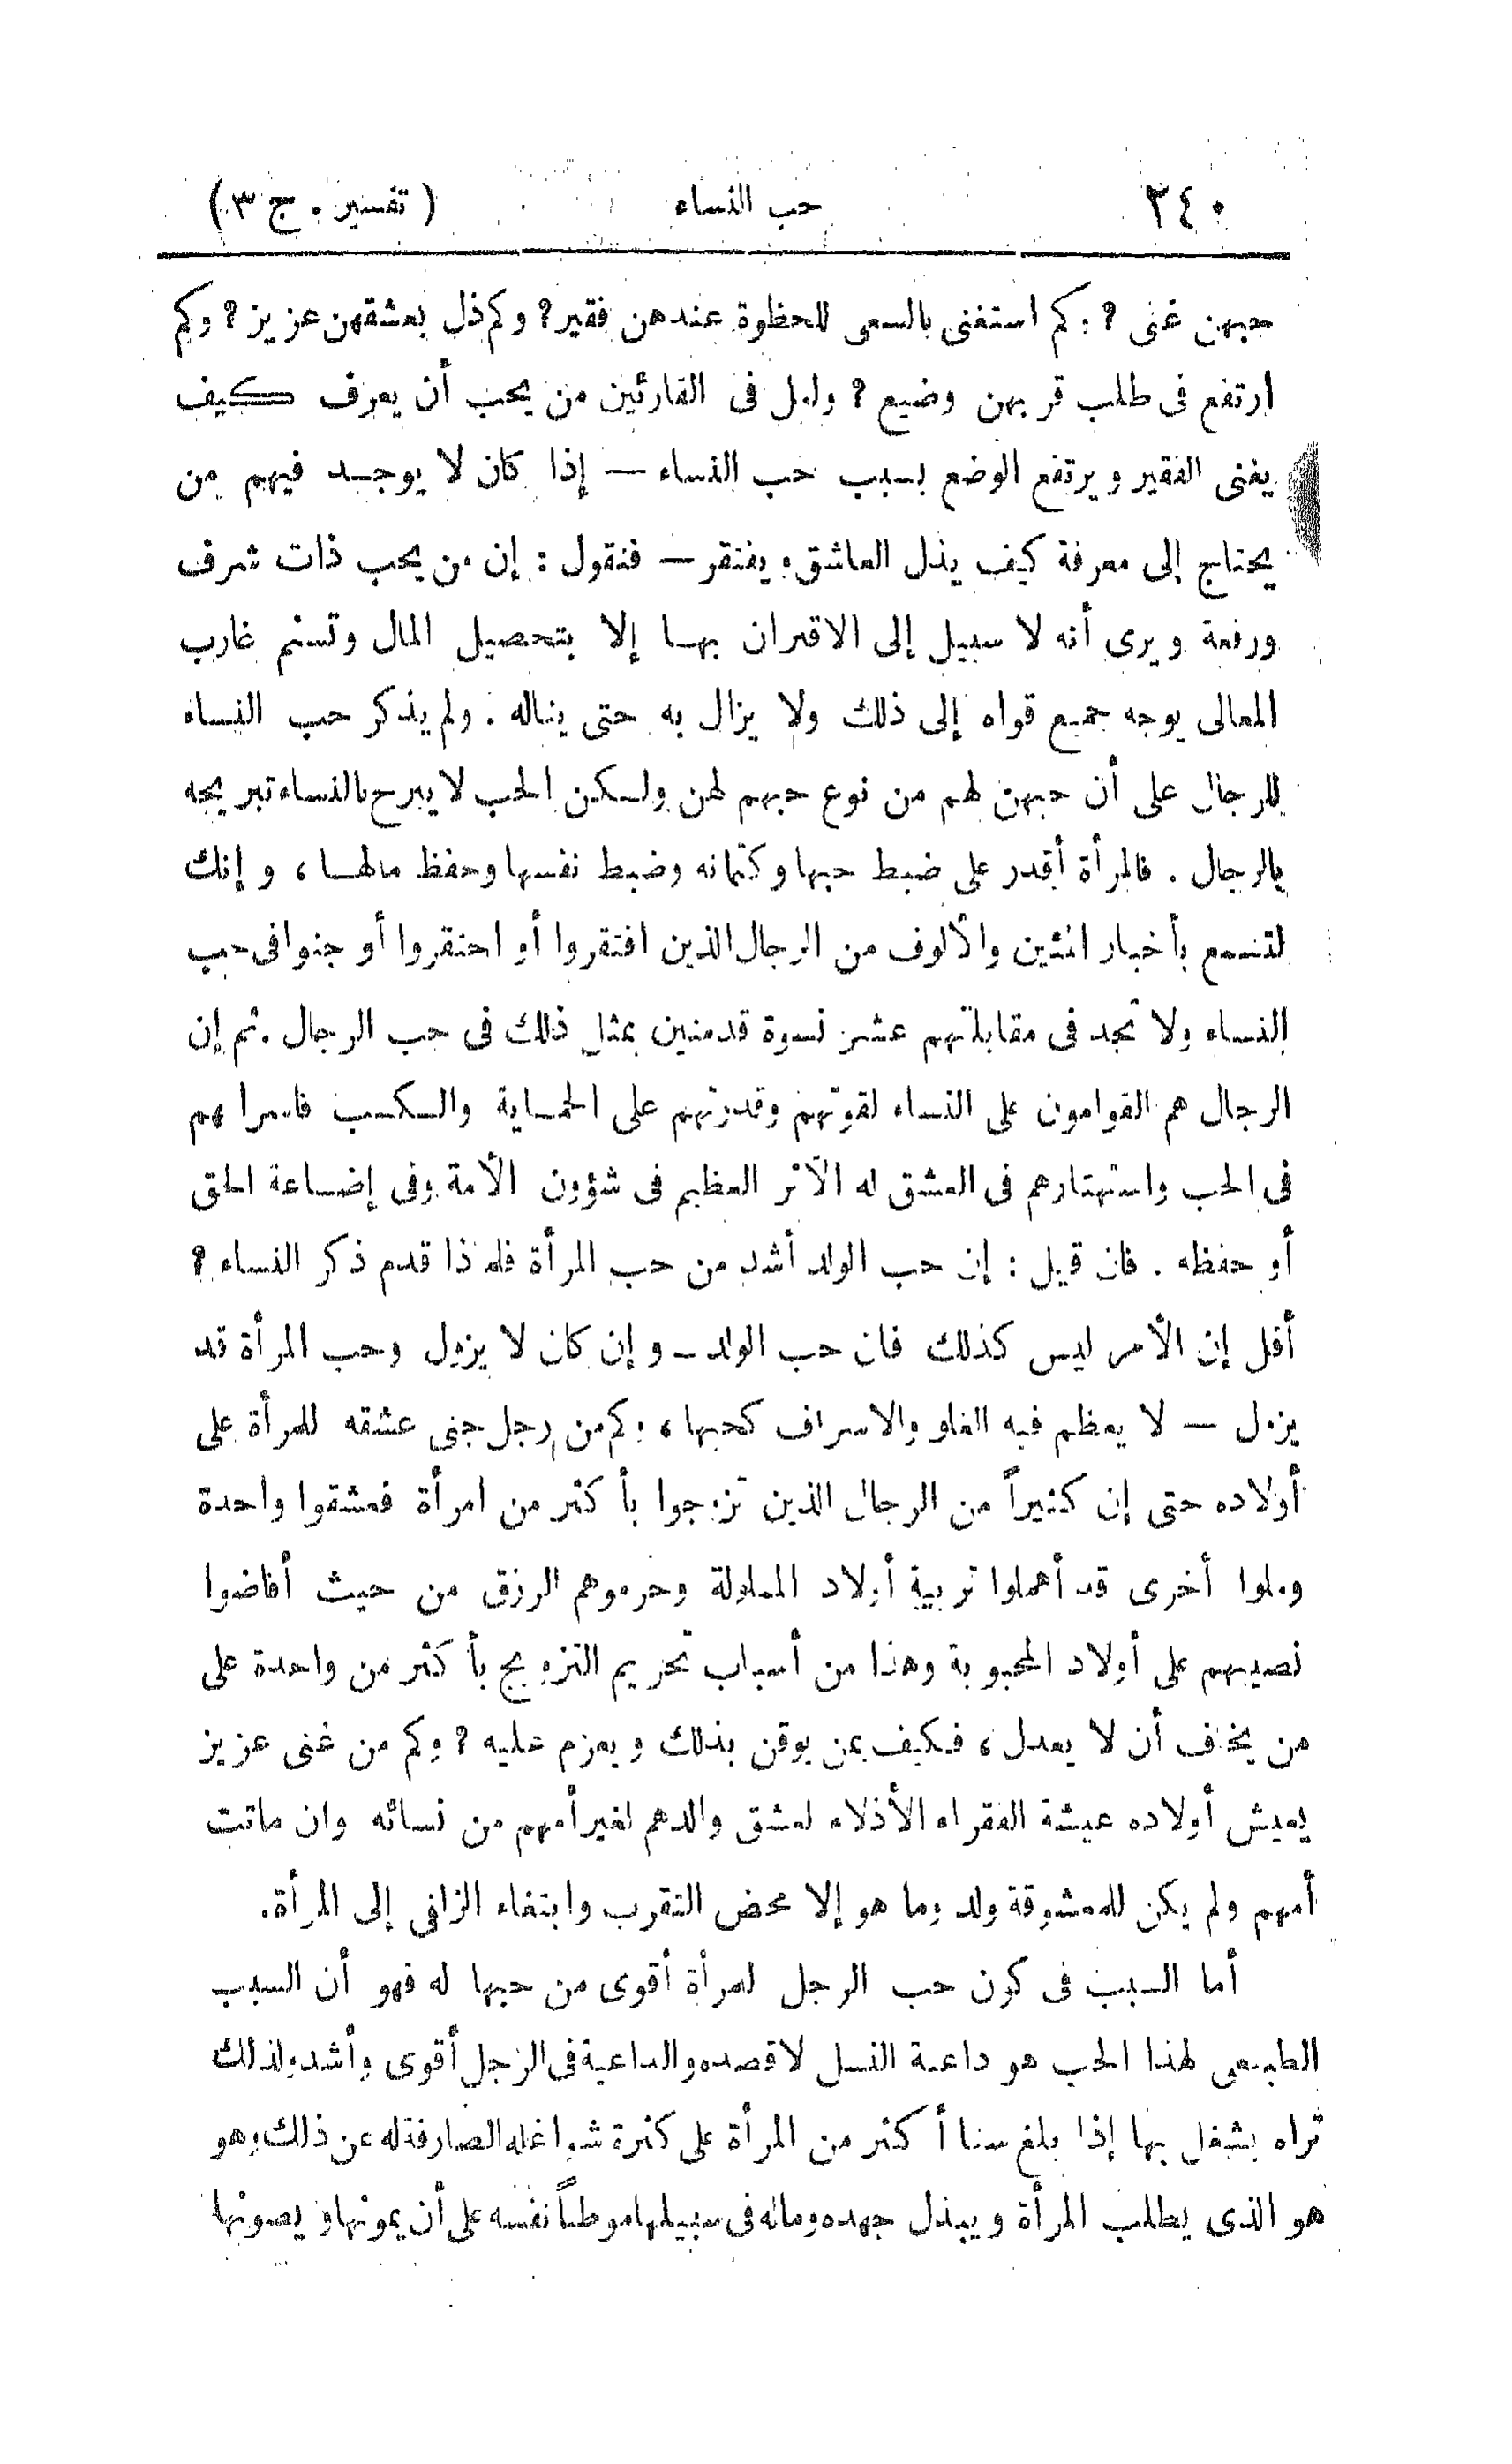 ٢٤٠ حب النساء ( تفسير . ج ٣ )
حبهن غنى ؟ وكم استغنى بالسعى للحظوة عندهن فقير؟ وكم ذل بعشقهن عزيز ؟ وكم
ارتفع فى طلب قربهن وضيع ؟ ولعل فى القارئين من يحب أن يعرف كيف
يغنى الفقير ويرتفع الوضع بسبب حب النساء — إذا كان لا يوجد فيهم من
يحتاج إلى معرفة كيف يذل العاشق ويفتقر — فنقول : إن من يحب ذات شرف
ورفعة ويرى أنه لا سبيل إلى الاقتران بها إلا بتحصيل المال وتسنم غارب
المعالى يوجه جميع قواه إلى ذلك ولا يزال به حتى يناله . ولم يذكر حب النساء
للرجال على أن حبهن لهم من نوع حبهم لهن ولكن الحب لا يبرح بالنساء تبريحه
بالرجال . فالمرأة أقدر على ضبط حبها وكتمانه وضبط نفسها وحفظ مالها ، وإنك
لتسمع بأخبار المئين والألوف من الرجال الذين افتقروا أو احتقروا أو جنوا فى حب
النساء ولا تجد فى مقابلتهم عشر نسوة قد منين بمثل ذلك فى حب الرجال . ثم إن
الرجال هم القوامون على النساء لقوتهم وقدرتهم على الحماية والكسب فاسرافهم
فى الحب واستهتارهم فى العشق له الأثر العظيم فى شؤون الأمة وفى إضاعة الحق
أو حفظه . فان قيل : إن حب الولد أشد من حب المرأة فلماذا قدم ذكر النساء ؟
أقل إن الأمر ليس كذلك فان حب الولد — وإن كان لا يزول وحب المرأة قد
يزول — لا يعظم فيه الغلو والاسراف كحبها ، وكم من رجل جنى عشقه للمرأة على
أولاده حتى إن كثيراً من الرجال الذين تزوجوا بأكثر من امرأة فعشقوا واحدة
وملوا أخرى قد أهملوا تربية أولاد المملولة وحرموهم الرزق من حيث أفاضوا
نصيبهم على أولاد المحبوبة وهذا من أسباب تحريم التزوج بأكثر من واحدة على
من يخاف أن لا يعدل ، فكيف بمن يوقن بذلك ويعزم عليه ؟ وكم من غنى عزيز
يعيش أولاده عيشة الفقراء الأذلاء لعشق والدهم لغير أمهم من نسائه وان ماتت
أمهم ولم يكن للمعشوقة ولد وما هو إلا محض التقرب وابتغاء الزلفى إلى المرأة .
أما السبب فى كون حب الرجل للمرأة أقوى من حبها له فهو أن السبب
الطبيعى لهذا الحب هو داعية النسل لا قصده والداعية فى الرجل أقوى وأشد ولذلك
تراه يشغل بها إذا بلغ سنا أكثر من المرأة على كثرة شواغله الصارفة له عن ذلك وهو
هو الذى يطلب المرأة ويبذل جهده وماله فى سبيلها موطناً نفسه على أن يمونها ويصونها